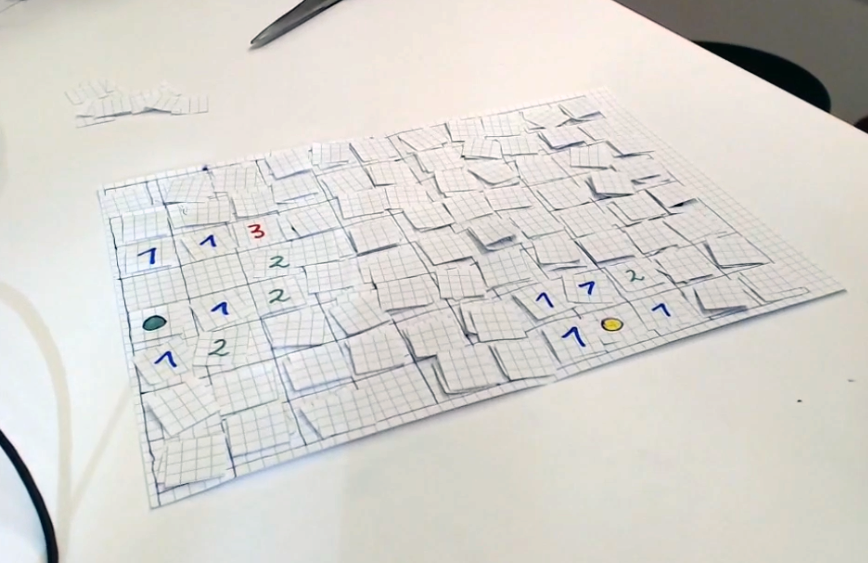 1 1 3
2
1 2
1 1 2
1 2
1 1